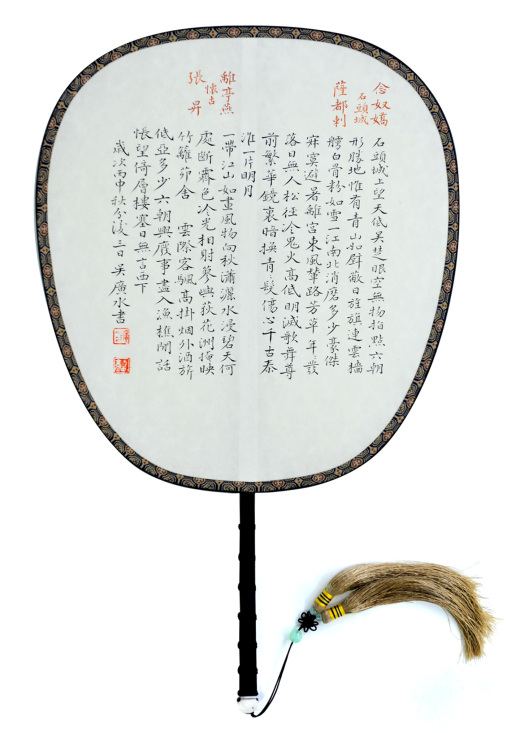 念奴嬌
石頭城
薩都剌
石頭城上望天低吳楚眼空無物指點六朝
形勝地惟有青山如壁蔽日旌旗連雲檣
艣白骨紛如雪一江南北消磨多少豪傑
寂寞避暑離宮東風輦路芳草年々發
落日無人松徑冷鬼火高低明滅歌舞尊
前繁華鏡裏暗換青々髮傷心千古秦
淮一片明月
離亭燕
懷古
張昇
一帶江山如畫風物向秋瀟灑水浸碧天何
處斷霽色冷光相射蓼嶼荻花洲掩映
竹籬茆舍 雲際客颿高掛烟外酒旆
低亞多少六朝興廢事盡入漁樵閒話
悵望倚層樓寒日無言西下
歲次丙申秋分後三日吳廣水書